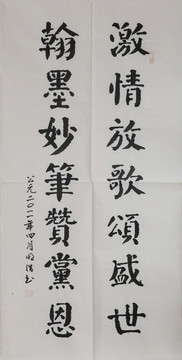 激情放歌頌盛世
翰墨妙筆贊黨恩
公元二〇一一年四月明浩书